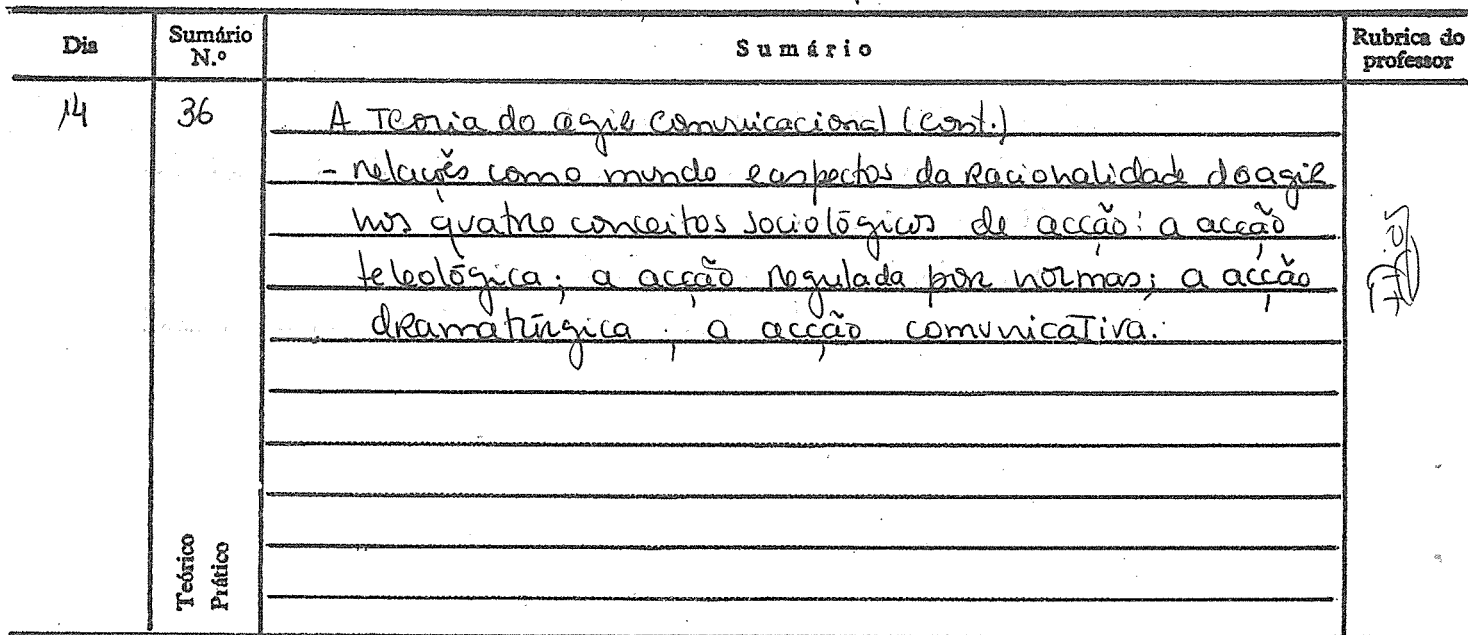 Dia Sumário N.º Sumário Rubrica do professor
14 36 A Teoria do agir comunicacional (cont.)
- relações com o mundo e aspectos da Racionalidade do agir
nos quatro conceitos sociológicos de acção: a acção
teleológica; a acção regulada por normas; a acção
dramatúrgica; a acção comunicativa.
Teórico
Prático